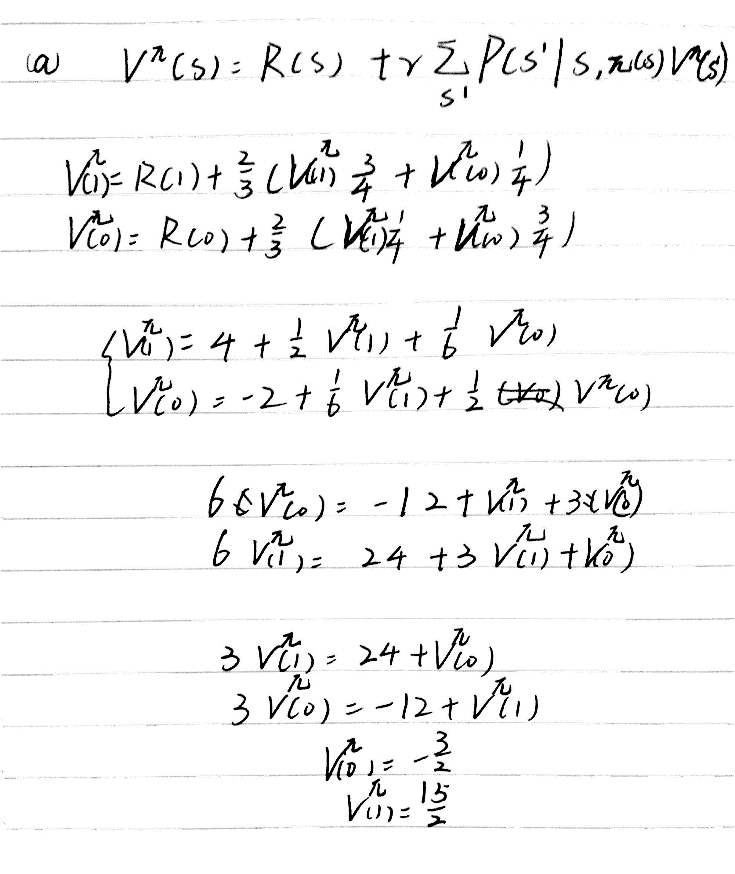 (a) V^π(s) = R(s) + γ Σ_{s'} P(s'|s,π(s)) V^π(s')
V^π(1) = R(1) + 2/3 (V^π(1) 3/4 + V^π(0) 1/4)
V^π(0) = R(0) + 2/3 (V^π(1) 1/4 + V^π(0) 3/4)
{ V^π(1) = 4 + 1/2 V^π(1) + 1/6 V^π(0)
V^π(0) = -2 + 1/6 V^π(1) + 1/2 V^π(0)
6 V^π(0) = -12 + V^π(1) + 3 V^π(0)
6 V^π(1) = 24 + 3 V^π(1) + V^π(0)
3 V^π(1) = 24 + V^π(0)
3 V^π(0) = -12 + V^π(1)
V^π(0) = -3/2
V^π(1) = 15/2